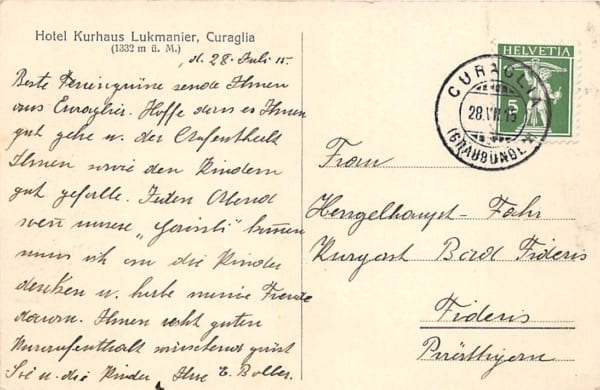 Hotel Kurhaus Lukmanier, Curaglia
(1332 m ü. M.)
d. 28. Juli 15.
Beste Feriengrüsse sende Ihnen
aus Curaglia. Hoffe dass es Ihnen
gut gehe u. der Aufenthalt
Ihnen sowie den Kindern
gut gefalle. Jeden Abend
wenn unsere „ kommen
muss ich an die Kinder
denken u. habe meine Freude
davon. Ihnen recht guten
wünschend grüsst
Sie u. die Kinder Ihre E. Bolber.
HELVETIA
5
CURAGLIA
28.VII.15
(GRAUBÜNDEN)
Frau
Hengelhaupt-Fahr
Kurgast Bad Fideris
Fideris
Prättigau